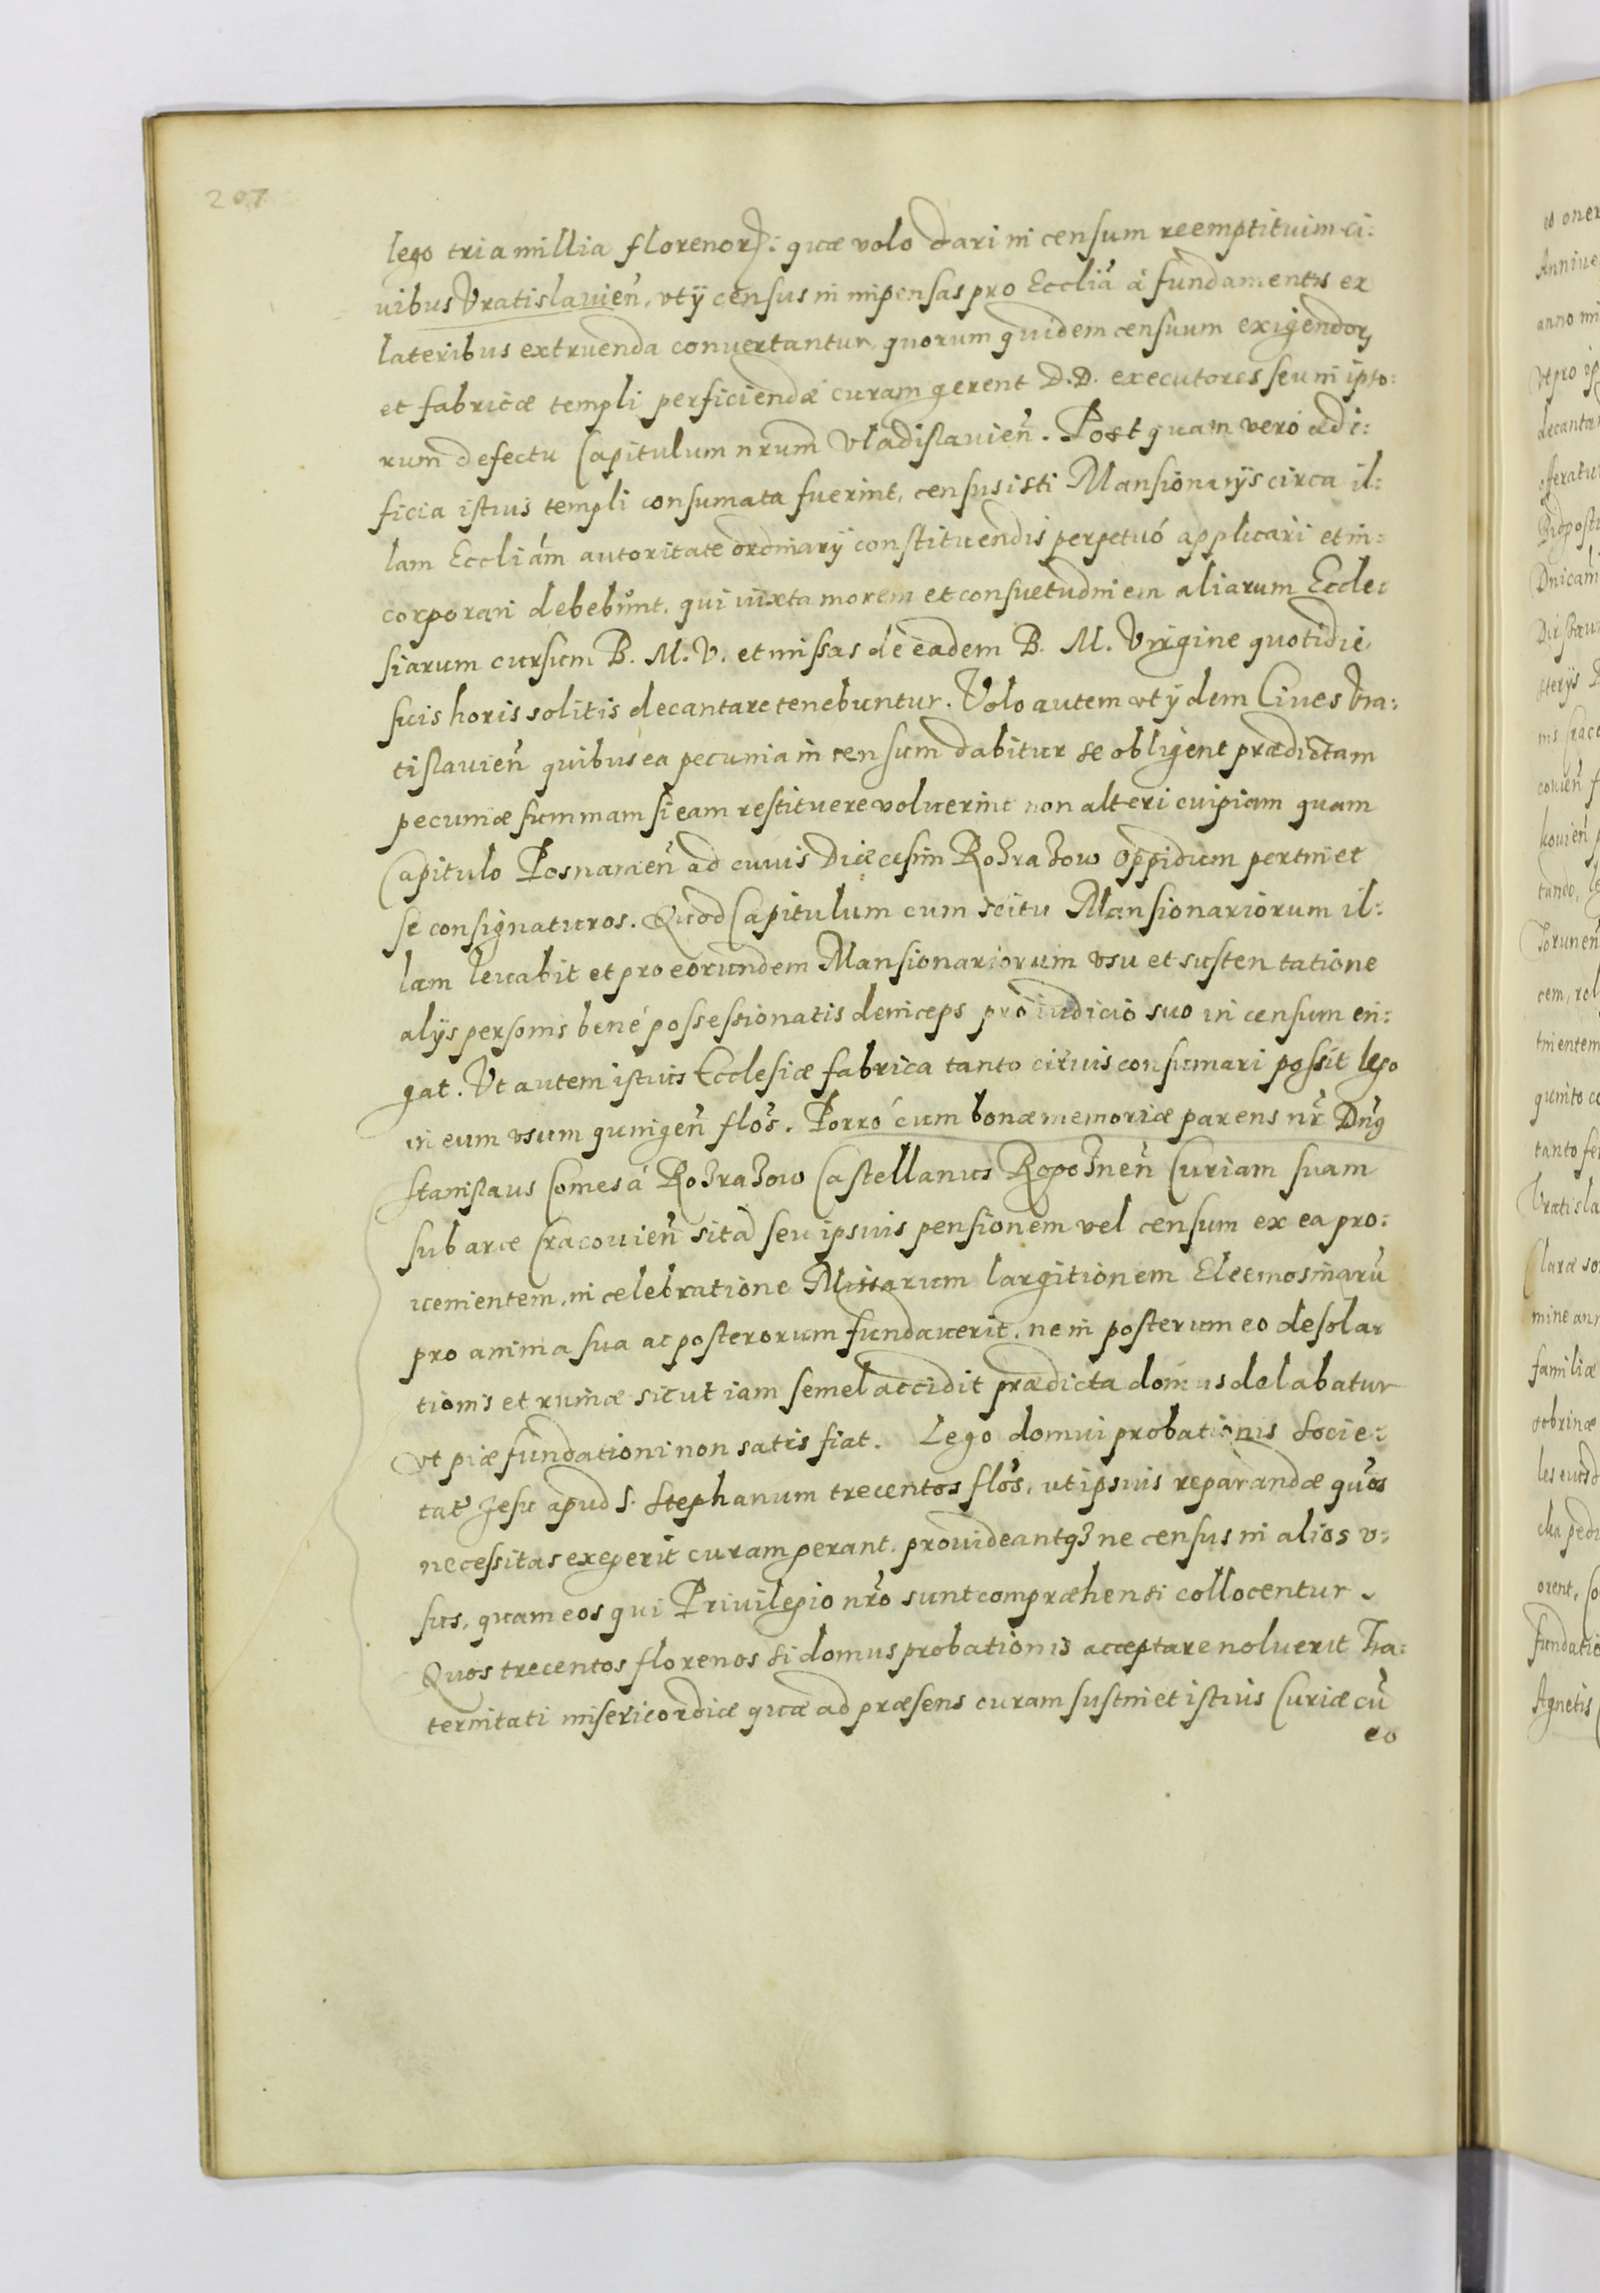 207
lego tria millia florenorꝝ: quæ volo dari in censum reemptituum ci:
uibus Vratislauien̄, vt ij census in impensas pro Eccliā à fundamentis ex
lateribus extruenda conuertantur, quorum quidem censuum exigendorꝝ
et fabricæ templi perficiendæ curam gerent D.D. executores seu in ipso:
rum defectu Capitulum nrum Vladislauien̄. Post quam vero ædi:
ficia istius templi consumata fuerint, census isti Mansionarijs circa il:
lam Eccliám autoritate ordinarij constituendis perpetuó applicari et in:
corporari debebunt, qui iuxta morem et consuetudinem aliarum Eccle:
siarum cursum B. M. V. et missas de eadem B. M. Virgine quotidie
suis horis solitis decantare tenebuntur. Volo autem vt ijdem Ciues Vra:
tislauien̄ quibus ea pecunia in censum dabitur se obligent prædictam
pecuniæ summam si eam restituere voluerint non alteri cuipiam quam
Capitulo Posnanien̄ ad cuius Diæcesim Rozrazow oppidum pertinet
se consignaturos. Quod Capitulum cum scitu Mansionariorum il:
lam leuabit et pro eorundem Mansionariorum vsu et sustentatione
alijs personis bené possessionatis deinceps pro iudicio suo in censum eri:
gat. Vt autem istius Ecclesiæ fabrica tanto citius consumari possit lego
in eum vsum quingen̄ flōs. Porró cum bonæ memoriæ parens nr̄ Dn̄s
Stanislaus Comes á Rozrazow Castellanus Rogoznen̄ Curiam suam
sub arce Cracouien̄ sitā seu ipsius pensionem vel censum ex ea pro:
uenientem, in celebratione Missarum largitionem Eleemosinarū
pro anima sua ac posterorum fundauerit, ne in posterum eo desola:
tionis et ruinæ sicut iam semel accidit prædicta domus delabatur
vt piæ fundationi non satis fiat. Lego domui probationis Socie:
tat̄ Jesu apud S. Stephanum trecentos flōs, ut ipsius reparandæ quōs
necessitas exegerit curam gerant, prouideantqʒ ne census in alios v:
sus, quam eos qui Priuilegio nr̄o sunt compræhensi collocentur.
Quos trecentos florenos si domus probationis acceptare noluerit Fra:
ternitati misericordiæ quæ ad præsens curam sustinet istius Curiæ cū
eo